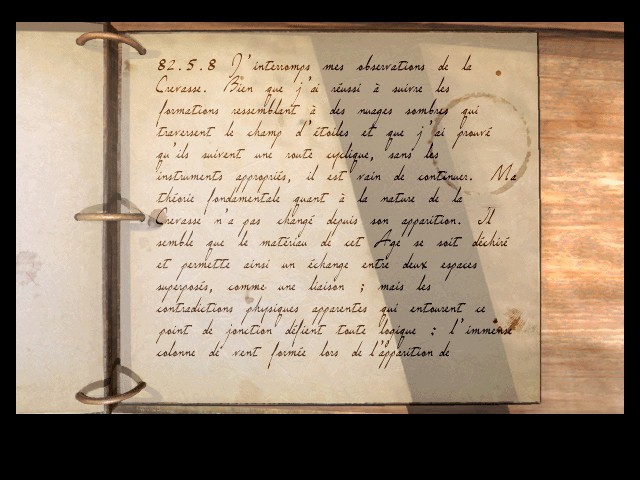 82.5.8 J'interromps mes observations de la
Crevasse. Bien que j'ai réussi à suivre les
formations ressemblant à des nuages sombres qui
traversent le champ d'étoiles et que j'ai prouvé
qu'ils suivent une route cyclique, sans les
instruments appropriés, il est vain de continuer. Ma
théorie fondamentale quant à la nature de la
Crevasse n'a pas changé depuis son apparition. Il
semble que le matériau de cet Age se soit déchiré
et permette ainsi un échange entre deux espaces
superposés, comme une liaison ; mais les
contradictions physiques apparentes qui entourent ce
point de jonction défient toute logique : l'immense
colonne de vent formée lors de l'apparition de